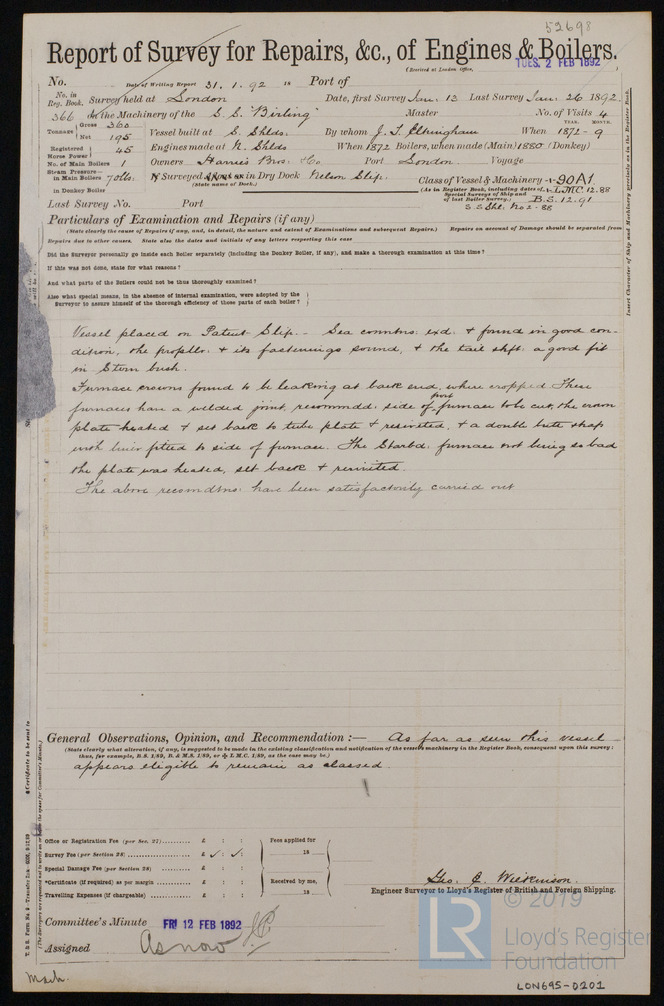 52698
Report of Survey for Repairs, &c., of Engines & Boilers.
(Received at London Office, TUES. 2 FEB 1892
No. Date of Writing Report 31. 1. 92 18 Port of
No. in Reg. Book. Survey held at London Date, first Survey Jan. 13 Last Survey Jan. 26 1892.
366 on the Machinery of the S. S. "Birling" Master No. of Visits 4
Tonnage Gross 360 Net 195 Vessel built at S. Shlds. By whom J. T. Eltringham When YEAR. MONTH. 1872-9
Registered Horse Power 45 Engines made at N. Shlds When 1872 Boilers, when made (Main) 1880 (Donkey)
No. of Main Boilers 1 Owners Harris Bros. & Co Port London. Voyage
Steam Pressure in Main Boilers 70 lbs. If Surveyed Afloat or in Dry Dock Nelson Slip. Class of Vessel & Machinery 90A1
in Donkey Boiler (State name of Dock.) (As in Register Book, including dates of Special Surveys of Ship and of last Boiler Survey.) L.M.C. 12.88
B.S. 12.91
Last Survey No. Port S.S. Shl. No 2 - 88
Particulars of Examination and Repairs (if any)
(State clearly the cause of Repairs if any, and, in detail, the nature and extent of Examinations and subsequent Repairs.) Repairs on account of Damage should be separated from
Repairs due to other causes. State also the dates and initials of any letters respecting this case
Did the Surveyor personally go inside each Boiler separately (including the Donkey Boiler, if any), and make a thorough examination at this time?
If this was not done, state for what reasons?
And what parts of the Boilers could not be thoroughly examined?
Also what special means, in the absence of internal examination, were adopted by the
Surveyor to assure himself of the thorough efficiency of those parts of each boiler?
Vessel placed on Patent Slip. - Sea conntns: exd. & found in good con-
dition, the propllr: & its fastenings sound, & the tail shft: a good fit
in Stern bush.
Furnace crowns found to be leaking at back end, where cropped These
furnaces have a welded joint, recommdd: side of port furnace to be cut, the crown
plate heated & set back to tube plate & rerivited, & a double butt strap
with liner fitted to side of furnace. The Starbd: furnace not being so bad
the plate was heated, set back & rerivited.
The above recomdtns: have been satisfactorily carried out
General Observations, Opinion, and Recommendation :— As far as seen this vessel
(State clearly what alteration, if any, is suggested to be made in the existing classification and notification of the vessel's machinery in the Register Book, consequent upon this survey;
thus, for example, B.S. 1/89, B. & M.S. 1/89, or L.M.C. 1/89, as the case may be.)
appears eligible to remain as classed.
Office or Registration Fee (per Sec. 27) £ : :
Survey Fee (per Section 28) £ : :
Special Damage Fee (per Section 28) £ : :
*Certificate (if required) as per margin £ : :
Travelling Expenses (if chargeable) £ : :
Fees applied for
18
Received by me,
18
Geo. C. Wilkinson.
Engineer Surveyor to Lloyd's Register of British and Foreign Shipping.
Committee's Minute FRI 12 FEB 1892
Assigned As now
Mach.
© 2019
LR
Lloyd's Register
Foundation
LON695-0201
Insert Character of Ship and Machinery precisely as in the Register Book.